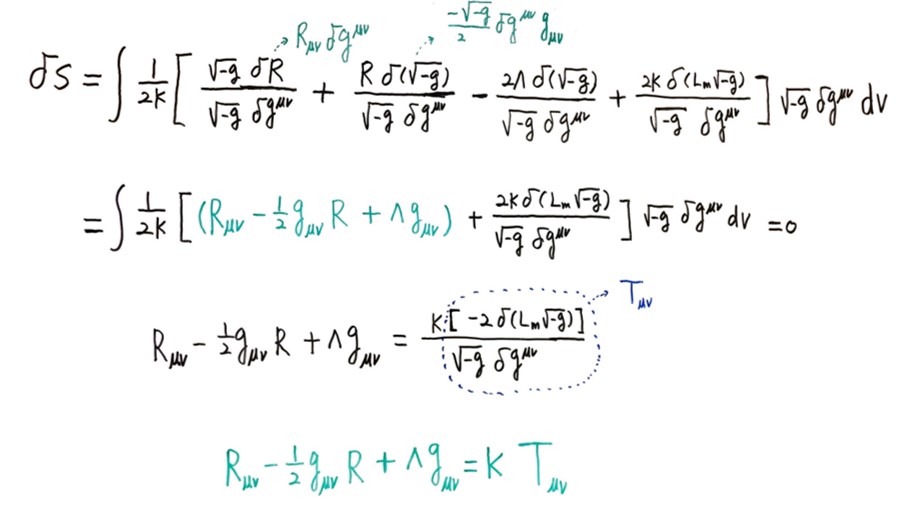 R_μν δg^μν   -√-g/2 δg^μν g_μν
δS = ∫ 1/2K [ √-g δR / √-g δg^μν + R δ(√-g) / √-g δg^μν - 2Λ δ(√-g) / √-g δg^μν + 2K δ(L_m√-g) / √-g δg^μν ] √-g δg^μν dv
= ∫ 1/2K [ (R_μν - 1/2 g_μν R + Λg_μν) + 2Kδ(L_m√-g) / √-g δg^μν ] √-g δg^μν dv = 0
T_μν
R_μν - 1/2 g_μν R + Λg_μν = K [ -2δ(L_m√-g) ] / √-g δg^μν
R_μν - 1/2 g_μν R + Λg_μν = K T_μν